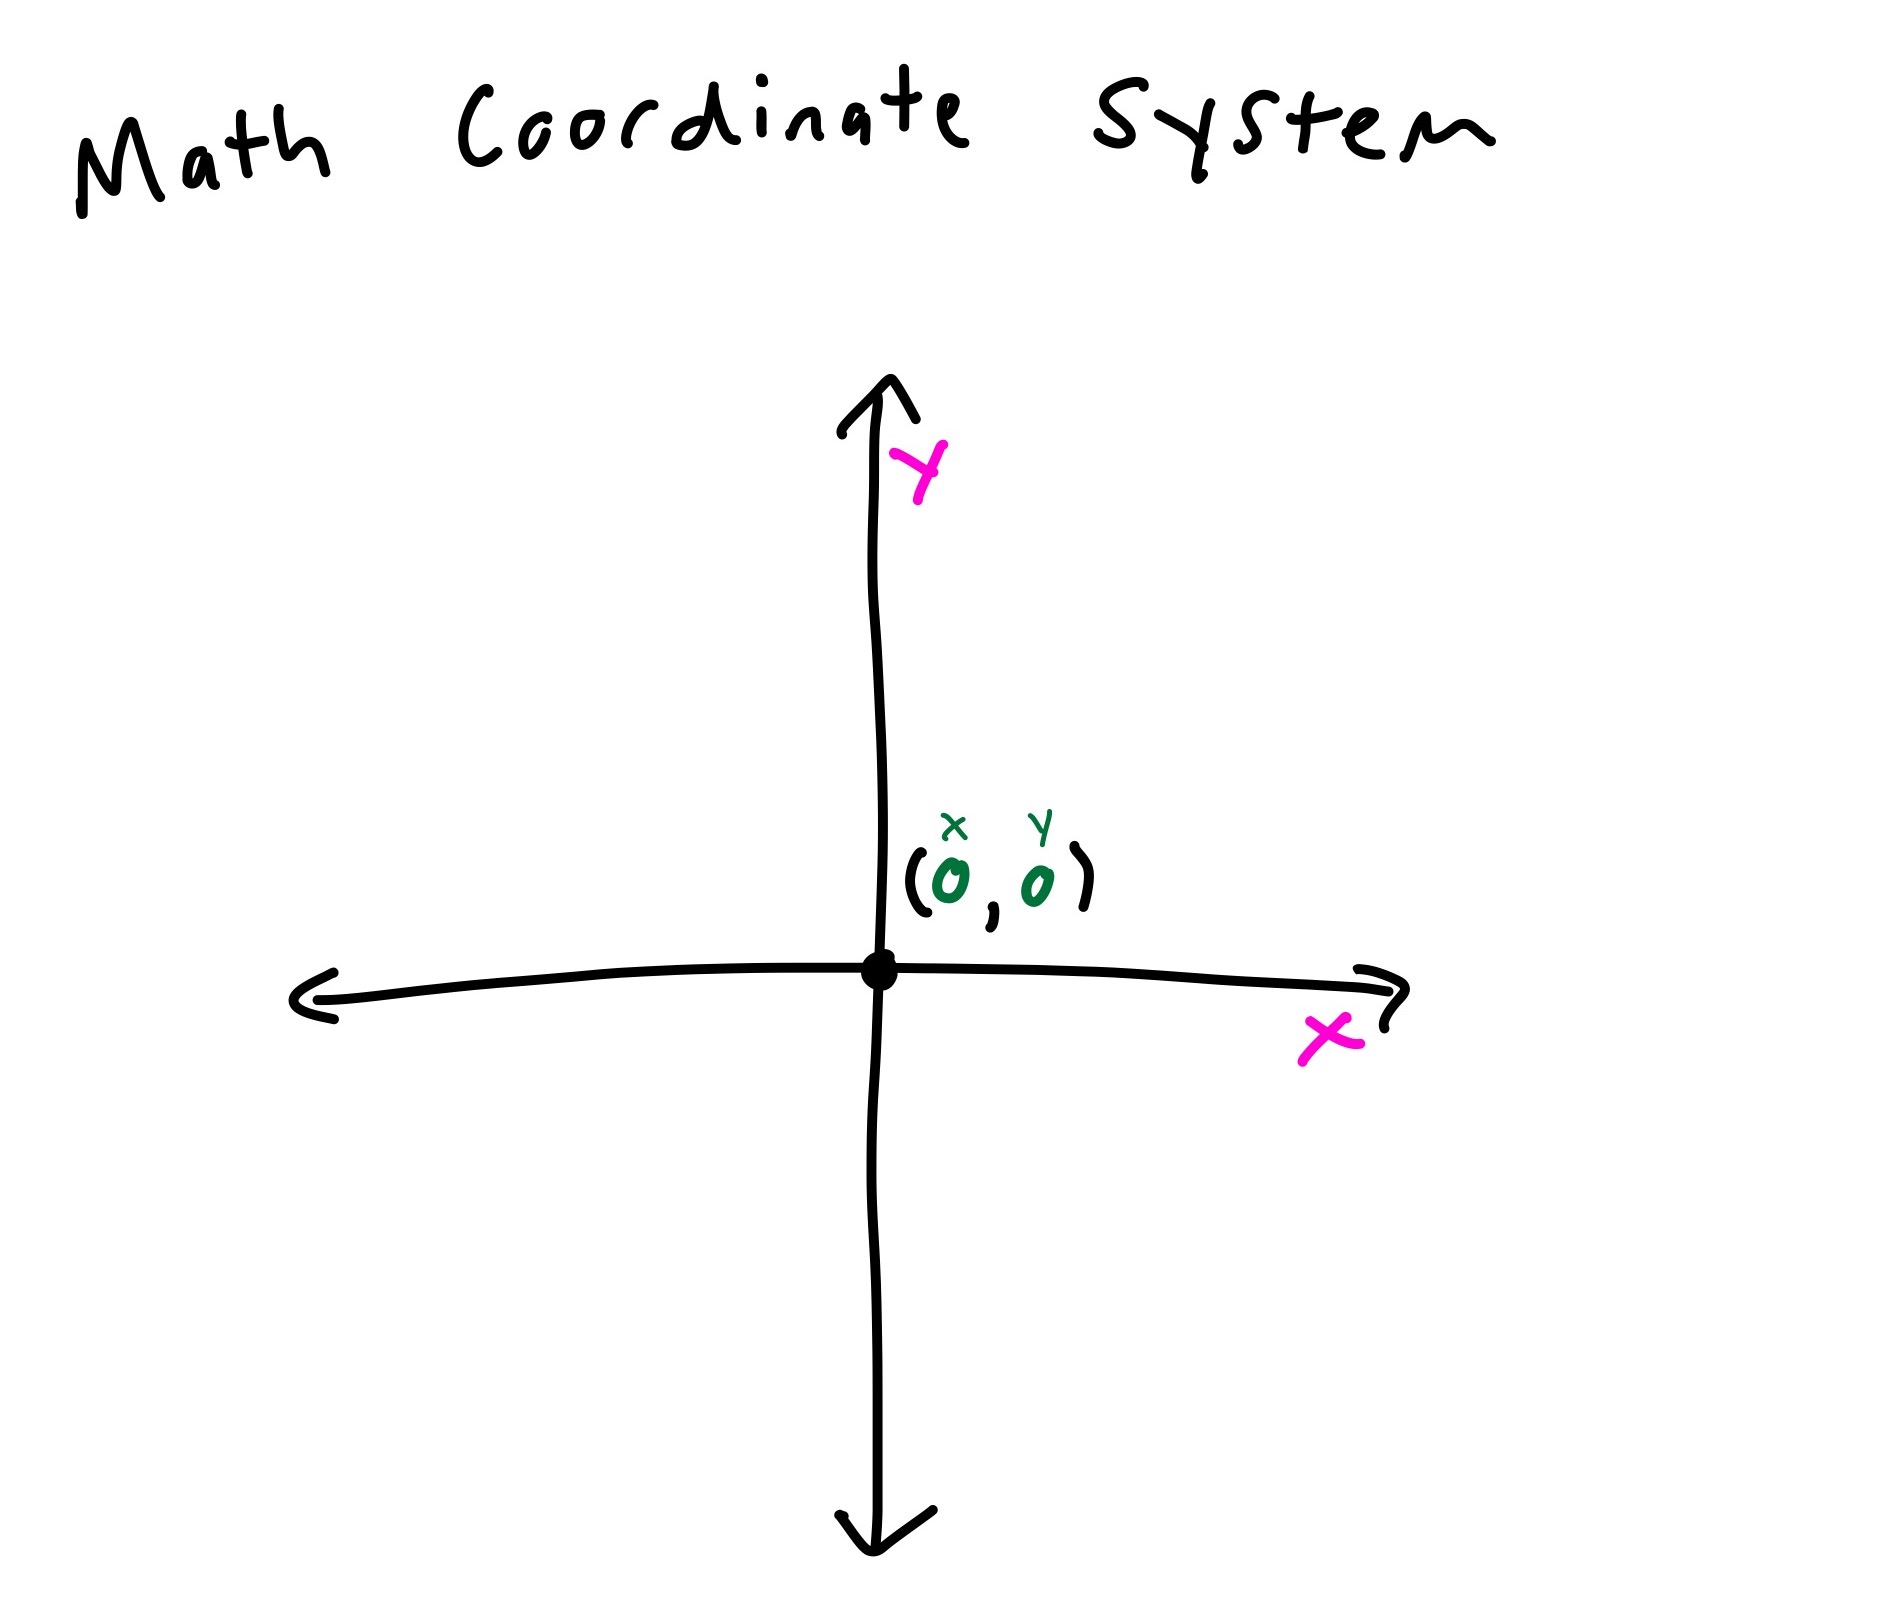 Math Coordinate System
Y
x y
(0, 0)
X